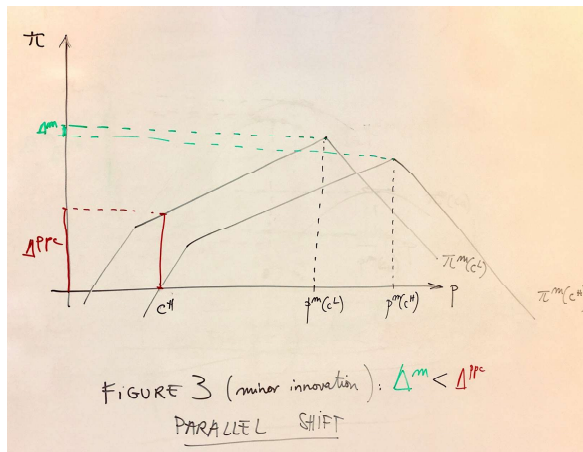 π
Δᵐ
Δᵖᵖᶜ
cᴴ
pᵐ(cᴸ)
pᵐ(cᴴ)
p
πᵐ(cᴸ)
πᵐ(cᴴ
FIGURE 3 (minor innovation): Δᵐ < Δᵖᵖᶜ
PARALLEL SHIFT